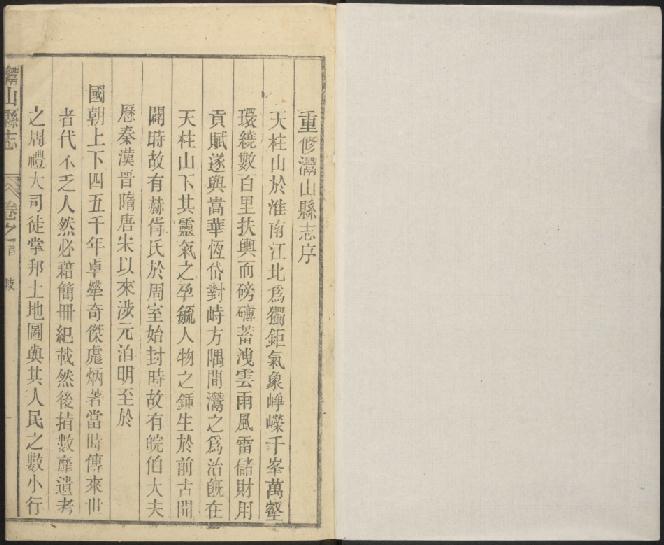 重修灊山縣志序
天柱山於淮南江北爲獨鉅氣象崢嶸千峯萬壑
環繞數百里扶輿而磅礴蓄洩雲雨風雷儲財用
貢賦遂與嵩華恆岱對峙方隅間灊之爲治旣在
天柱山下其靈氣之孕毓人物之鍾生於前古開
闢時故有赫胥氏於周室始封時故有皖伯大夫
歷秦漢晉隋唐宋以來涉元泊明至於
國朝上下四五千年卓犖奇傑彪炳著當時傳來世
者代不乏人然必藉簡冊紀載然後指數靡遺考
之周禮大司徒掌邦土地圖與其人民之數小行
灊山縣志
卷之首
一